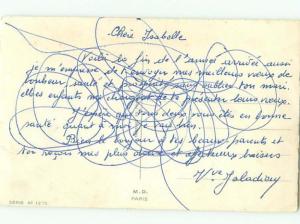 Chère Isabelle
Voilà la fin de l'année arrivée aussi
je m'empresse de t'envoyer mes meilleurs vœux de
bonheur, santé de sans oublier ton mari.
Mes enfants me chargent de te présenter leurs vœux.
J'espère que tous deux vous êtes en bonne
santé, quant à moi je vais bien
Bien le bonjour à tes beaux-parents et
toi reçois mes plus doux et affectueux baisers
Vve
M.D.
PARIS
SÉRIE Nº 1275